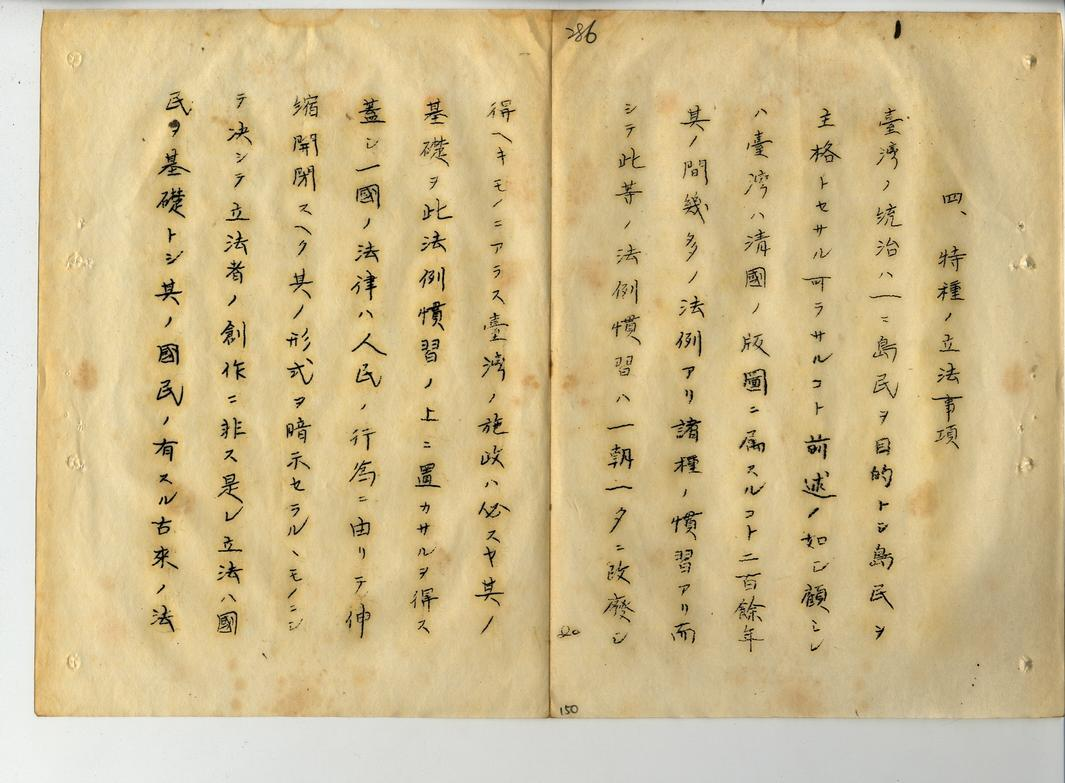 286
1
四、特種ノ立法事項
臺灣ノ統治ハ一ニ島民ヲ目的トシ島民ヲ
主格トセサル可ラサルコト前述ノ如シ顧ミレ
ハ臺灣ハ淸國ノ版圖ニ属スルコト二百餘年
其ノ間幾多ノ法例アリ諸種ノ慣習アリ而
シテ此等ノ法例慣習ハ一朝一夕ニ改廢シ
得ヘキモノニアラス臺灣ノ施政ハ必スヤ其ノ
基礎ヲ此法例慣習ノ上ニ置カサルヲ得ス
蓋シ一國ノ法律ハ人民ノ行為ニ由リテ伸
縮開閉スヘク其ノ形式ヲ暗示セラルヽモノニシ
テ决シテ立法者ノ創作ニ非ス是レ立法ハ國
民ヲ基礎トシ其ノ國民ノ有スル古來ノ法
20
150